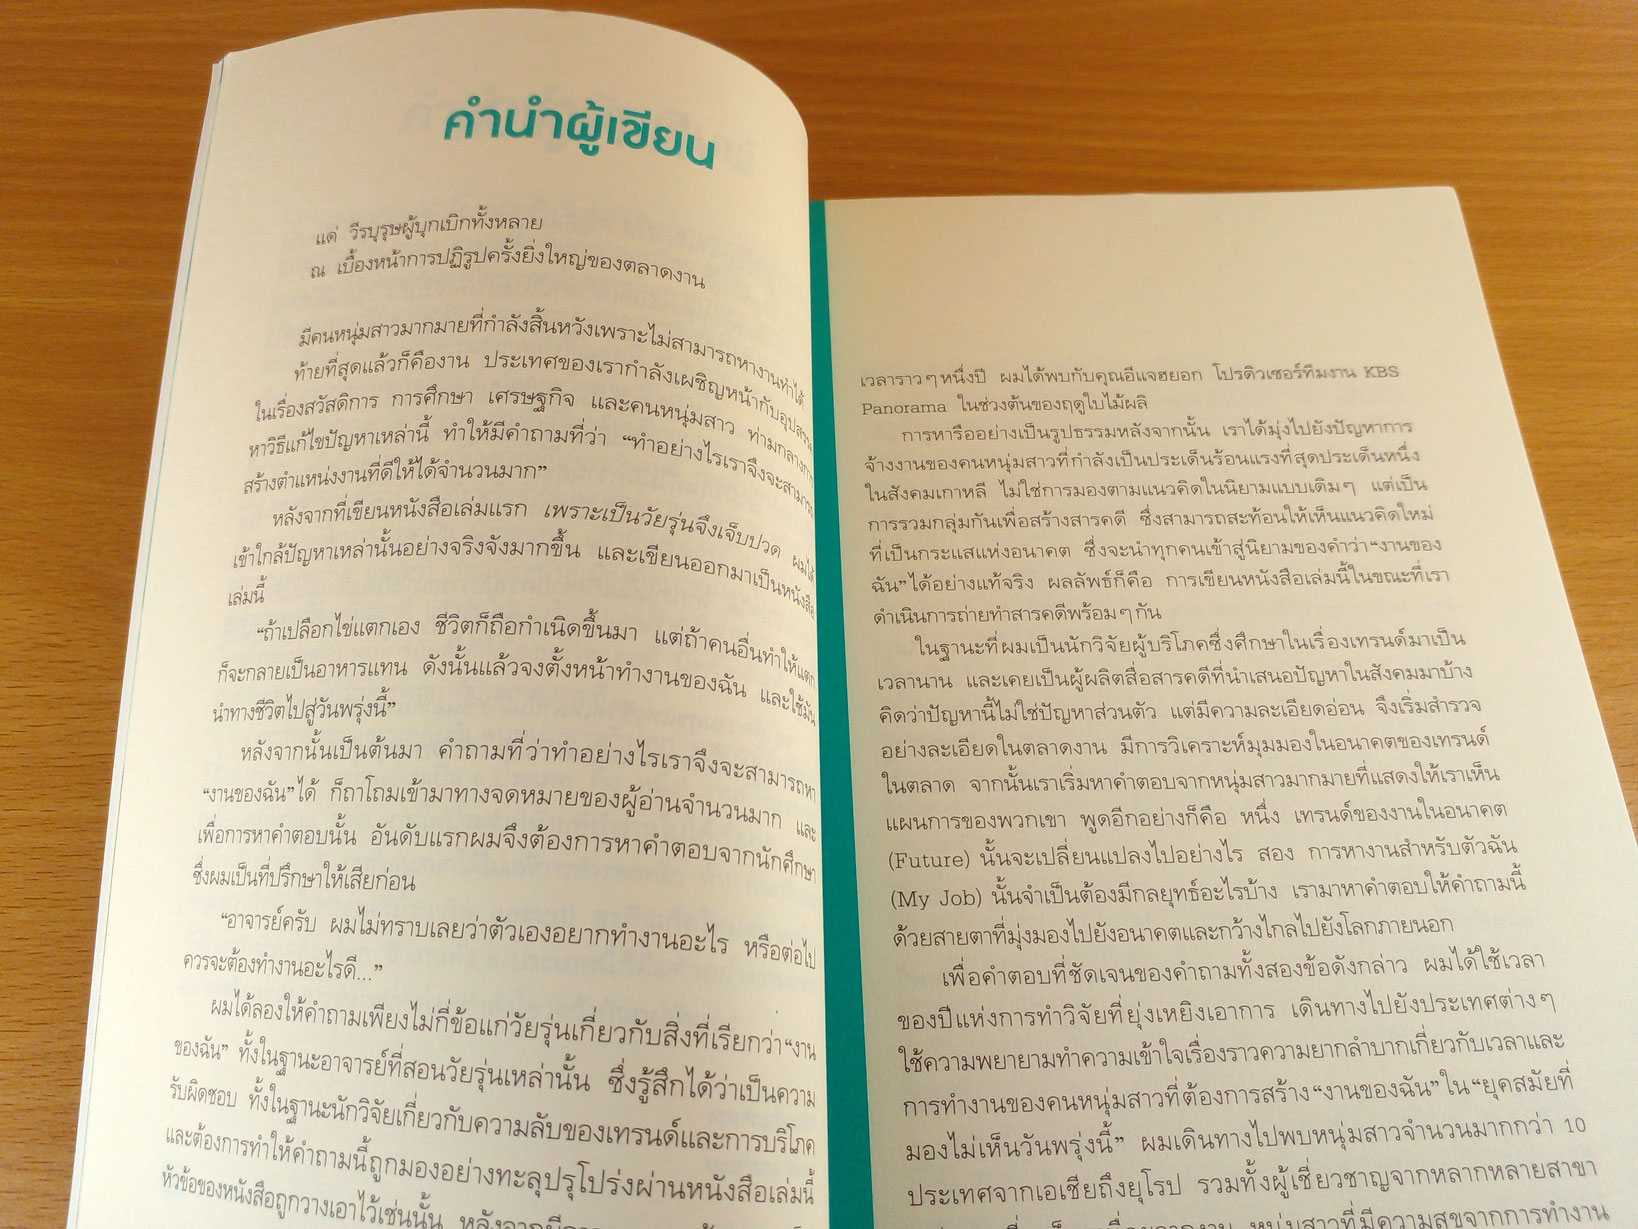 คำนำผู้เขียน
แด่ วีรบุรุษผู้บุกเบิกทั้งหลาย
ณ เบื้องหน้าการปฏิรูปครั้งยิ่งใหญ่ของตลาดงาน
มีคนหนุ่มสาวมากมายที่กำลังสิ้นหวังเพราะไม่สามารถหางานทำได้
ท้ายที่สุดแล้วก็คืองาน ประเทศของเรากำลังเผชิญหน้ากับอุปสรรค
ในเรื่องสวัสดิการ การศึกษา เศรษฐกิจ และคนหนุ่มสาว ท่ามกลางการ
หาวิธีแก้ไขปัญหาเหล่านี้ ทำให้มีคำถามที่ว่า “ทำอย่างไรเราจึงจะสามารถ
สร้างตำแหน่งงานที่ดีให้ได้จำนวนมาก”
หลังจากที่เขียนหนังสือเล่มแรก เพราะเป็นวัยรุ่นจึงเจ็บปวด ผมได้
เข้าใกล้ปัญหาเหล่านั้นอย่างจริงจังมากขึ้น และเขียนออกมาเป็นหนังสือ
เล่มนี้
“ถ้าเปลือกไข่แตกเอง ชีวิตก็ถือกำเนิดขึ้นมา แต่ถ้าคนอื่นทำให้แตก
ก็จะกลายเป็นอาหารแทน ดังนั้นแล้วจงตั้งหน้าทำงานของฉัน และใช้มัน
นำทางชีวิตไปสู่วันพรุ่งนี้”
หลังจากนั้นเป็นต้นมา คำถามที่ว่าทำอย่างไรเราจึงจะสามารถหา
“งานของฉัน”ได้ ก็ถาโถมเข้ามาทางจดหมายของผู้อ่านจำนวนมาก และ
เพื่อการหาคำตอบนั้น อันดับแรกผมจึงต้องการหาคำตอบจากนักศึกษา
ซึ่งผมเป็นที่ปรึกษาให้เสียก่อน
“อาจารย์ครับ ผมไม่ทราบเลยว่าตัวเองอยากทำงานอะไร หรือต่อไป
ควรจะต้องทำงานอะไรดี...”
ผมได้ลองให้คำถามเพียงไม่กี่ข้อแก่วัยรุ่นเกี่ยวกับสิ่งที่เรียกว่า“งาน
ของฉัน” ทั้งในฐานะอาจารย์ที่สอนวัยรุ่นเหล่านั้น ซึ่งรู้สึกได้ว่าเป็นความ
รับผิดชอบ ทั้งในฐานะนักวิจัยเกี่ยวกับความลับของเทรนด์และการบริโภค
และต้องการทำให้คำถามนี้ถูกมองอย่างทะลุปรุโปร่งผ่านหนังสือเล่มนี้
หัวข้อของหนังสือถูกวางเอาไว้เช่นนั้น
เวลาราวๆหนึ่งปี ผมได้พบกับคุณอีแจฮยอก โปรดิวเซอร์ทีมงาน KBS
Panorama ในช่วงต้นของฤดูใบไม้ผลิ
การหารืออย่างเป็นรูปธรรมหลังจากนั้น เราได้มุ่งไปยังปัญหาการ
จ้างงานของคนหนุ่มสาวที่กำลังเป็นประเด็นร้อนแรงที่สุดประเด็นหนึ่ง
ในสังคมเกาหลี ไม่ใช่การมองตามแนวคิดในนิยามแบบเดิมๆ แต่เป็น
การรวมกลุ่มกันเพื่อสร้างสารคดี ซึ่งสามารถสะท้อนให้เห็นแนวคิดใหม่
ที่เป็นกระแสแห่งอนาคต ซึ่งจะนำทุกคนเข้าสู่นิยามของคำว่า“งานของ
ฉัน”ได้อย่างแท้จริง ผลลัพธ์ก็คือ การเขียนหนังสือเล่มนี้ในขณะที่เรา
ดำเนินการถ่ายทำสารคดีพร้อมๆกัน
ในฐานะที่ผมเป็นนักวิจัยผู้บริโภคซึ่งศึกษาในเรื่องเทรนด์มาเป็น
เวลานาน และเคยเป็นผู้ผลิตสื่อสารคดีที่นำเสนอปัญหาในสังคมมาบ้าง
คิดว่าปัญหานี้ไม่ใช่ปัญหาส่วนตัว แต่มีความละเอียดอ่อน จึงเริ่มสำรวจ
อย่างละเอียดในตลาดงาน มีการวิเคราะห์มุมมองในอนาคตของเทรนด์
ในตลาด จากนั้นเราเริ่มหาคำตอบจากหนุ่มสาวมากมายที่แสดงให้เราเห็น
แผนการของพวกเขา พูดอีกอย่างก็คือ หนึ่ง เทรนด์ของงานในอนาคต
(Future) นั้นจะเปลี่ยนแปลงไปอย่างไร สอง การหางานสำหรับตัวฉัน
(My Job) นั้นจำเป็นต้องมีกลยุทธ์อะไรบ้าง เรามาหาคำตอบให้คำถามนี้
ด้วยสายตาที่มุ่งมองไปยังอนาคตและกว้างไกลไปยังโลกภายนอก
เพื่อคำตอบที่ชัดเจนของคำถามทั้งสองข้อดังกล่าว ผมได้ใช้เวลา
ของปีแห่งการทำวิจัยที่ยุ่งเหยิงเอาการ เดินทางไปยังประเทศต่างๆ
ใช้ความพยายามทำความเข้าใจเรื่องราวความยากลำบากเกี่ยวกับเวลาและ
การทำงานของคนหนุ่มสาวที่ต้องการสร้าง“งานของฉัน”ใน“ยุคสมัยที่
มองไม่เห็นวันพรุ่งนี้” ผมเดินทางไปพบหนุ่มสาวจำนวนมากกว่า 10
ประเทศจากเอเชียถึงยุโรป รวมทั้งผู้เชี่ยวชาญจากหลากหลายสาขา
หนุ่มสาวที่มีความสุขจากการทำงาน